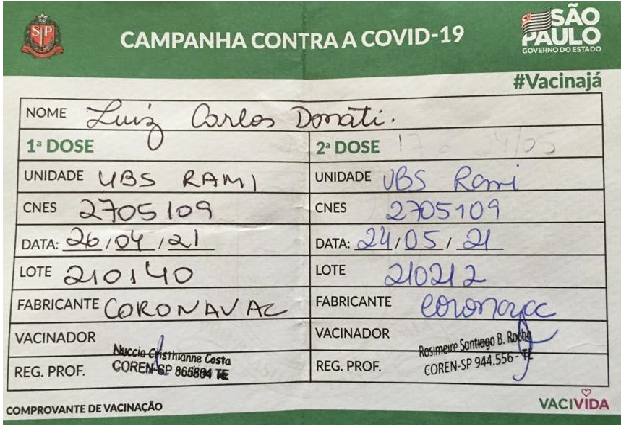 SP
CAMPANHA CONTRA A COVID-19
SÃO
PAULO
GOVERNO DO ESTADO
#Vacinajá
NOME Luiz Carlos Donati.
1ª DOSE 2ª DOSE
UNIDADE UBS RAMI UNIDADE UBS Rami
CNES 2705109 CNES 2705109
DATA: 26/04/21 DATA: 24/05/21
LOTE 210140 LOTE 210212
FABRICANTE CORONAVAC FABRICANTE Coronavac
VACINADOR Nuccia Cristhianne Costa VACINADOR Rosimeire Santiago B. Rocha
REG. PROF. COREN-SP TE REG. PROF. COREN-SP 944.556-TE
COMPROVANTE DE VACINAÇÃO VACIVIDA